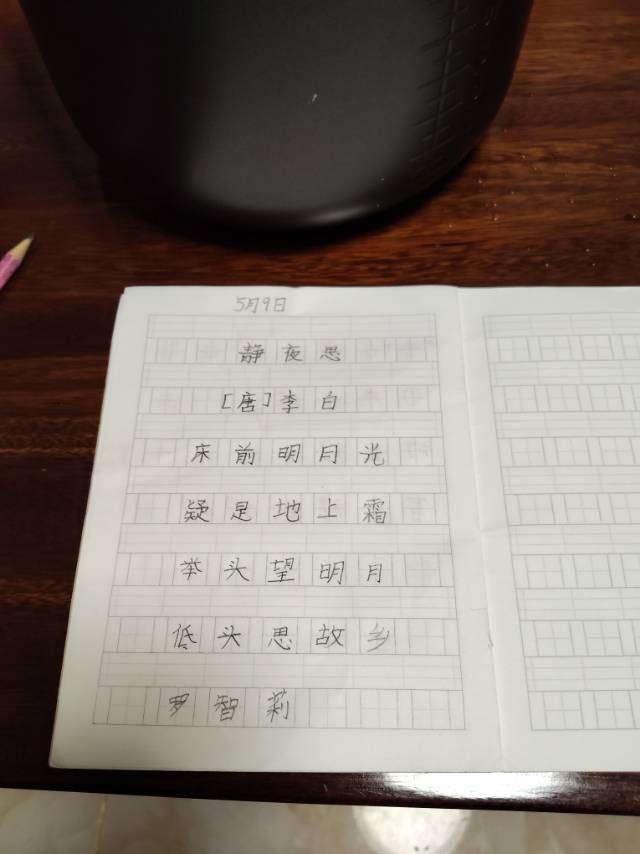 5月9日
静夜思
[唐]李白
床前明月光
疑是地上霜
举头望明月
低头思故乡
罗智莉